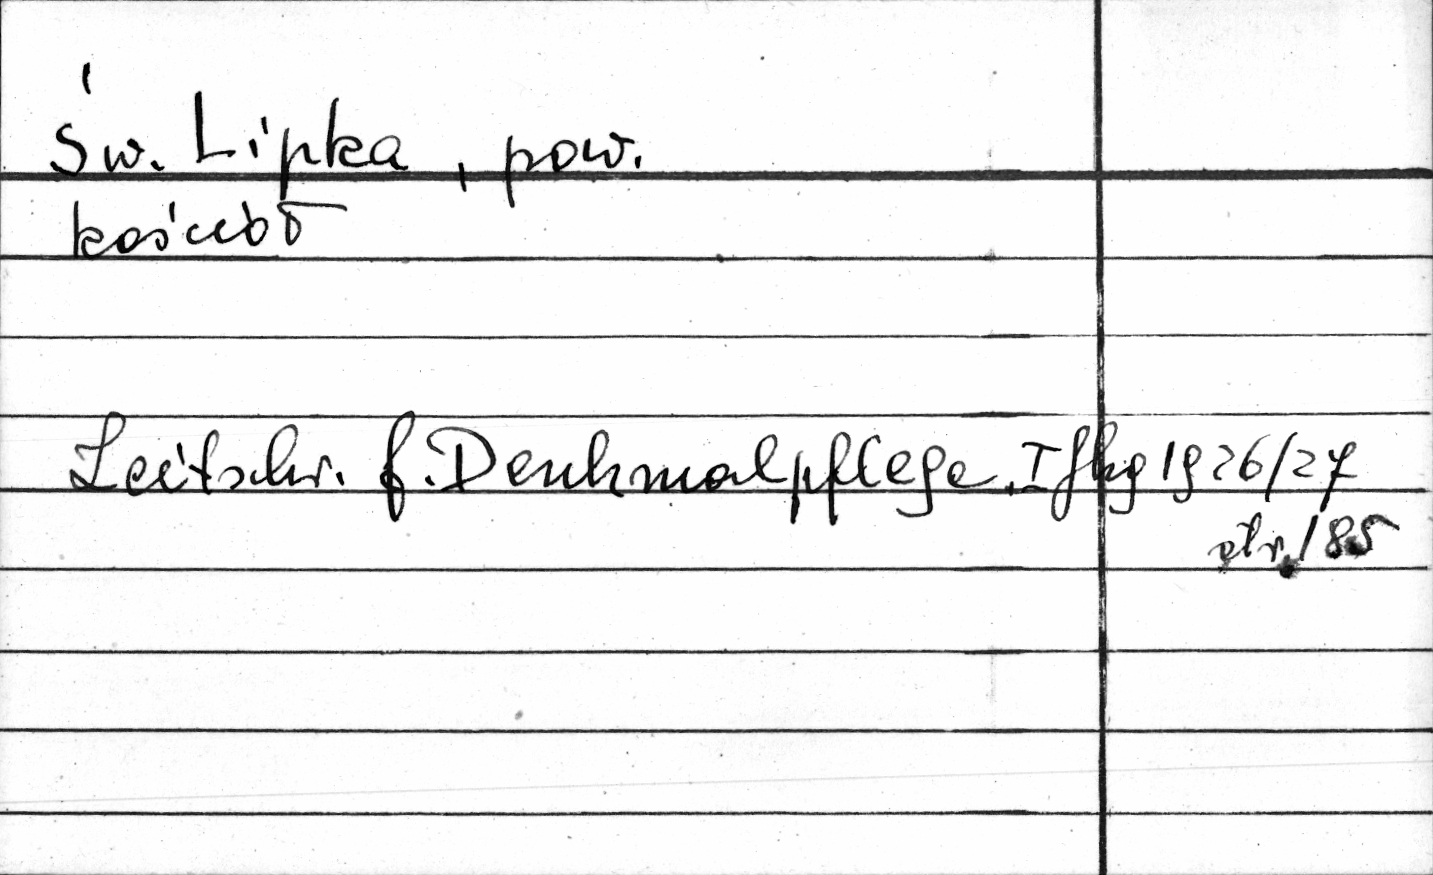 Św. Lipka, pow.
kościół
Zeitschr. f. Denkmalpflege. I Jhg 1926/27
str. 185